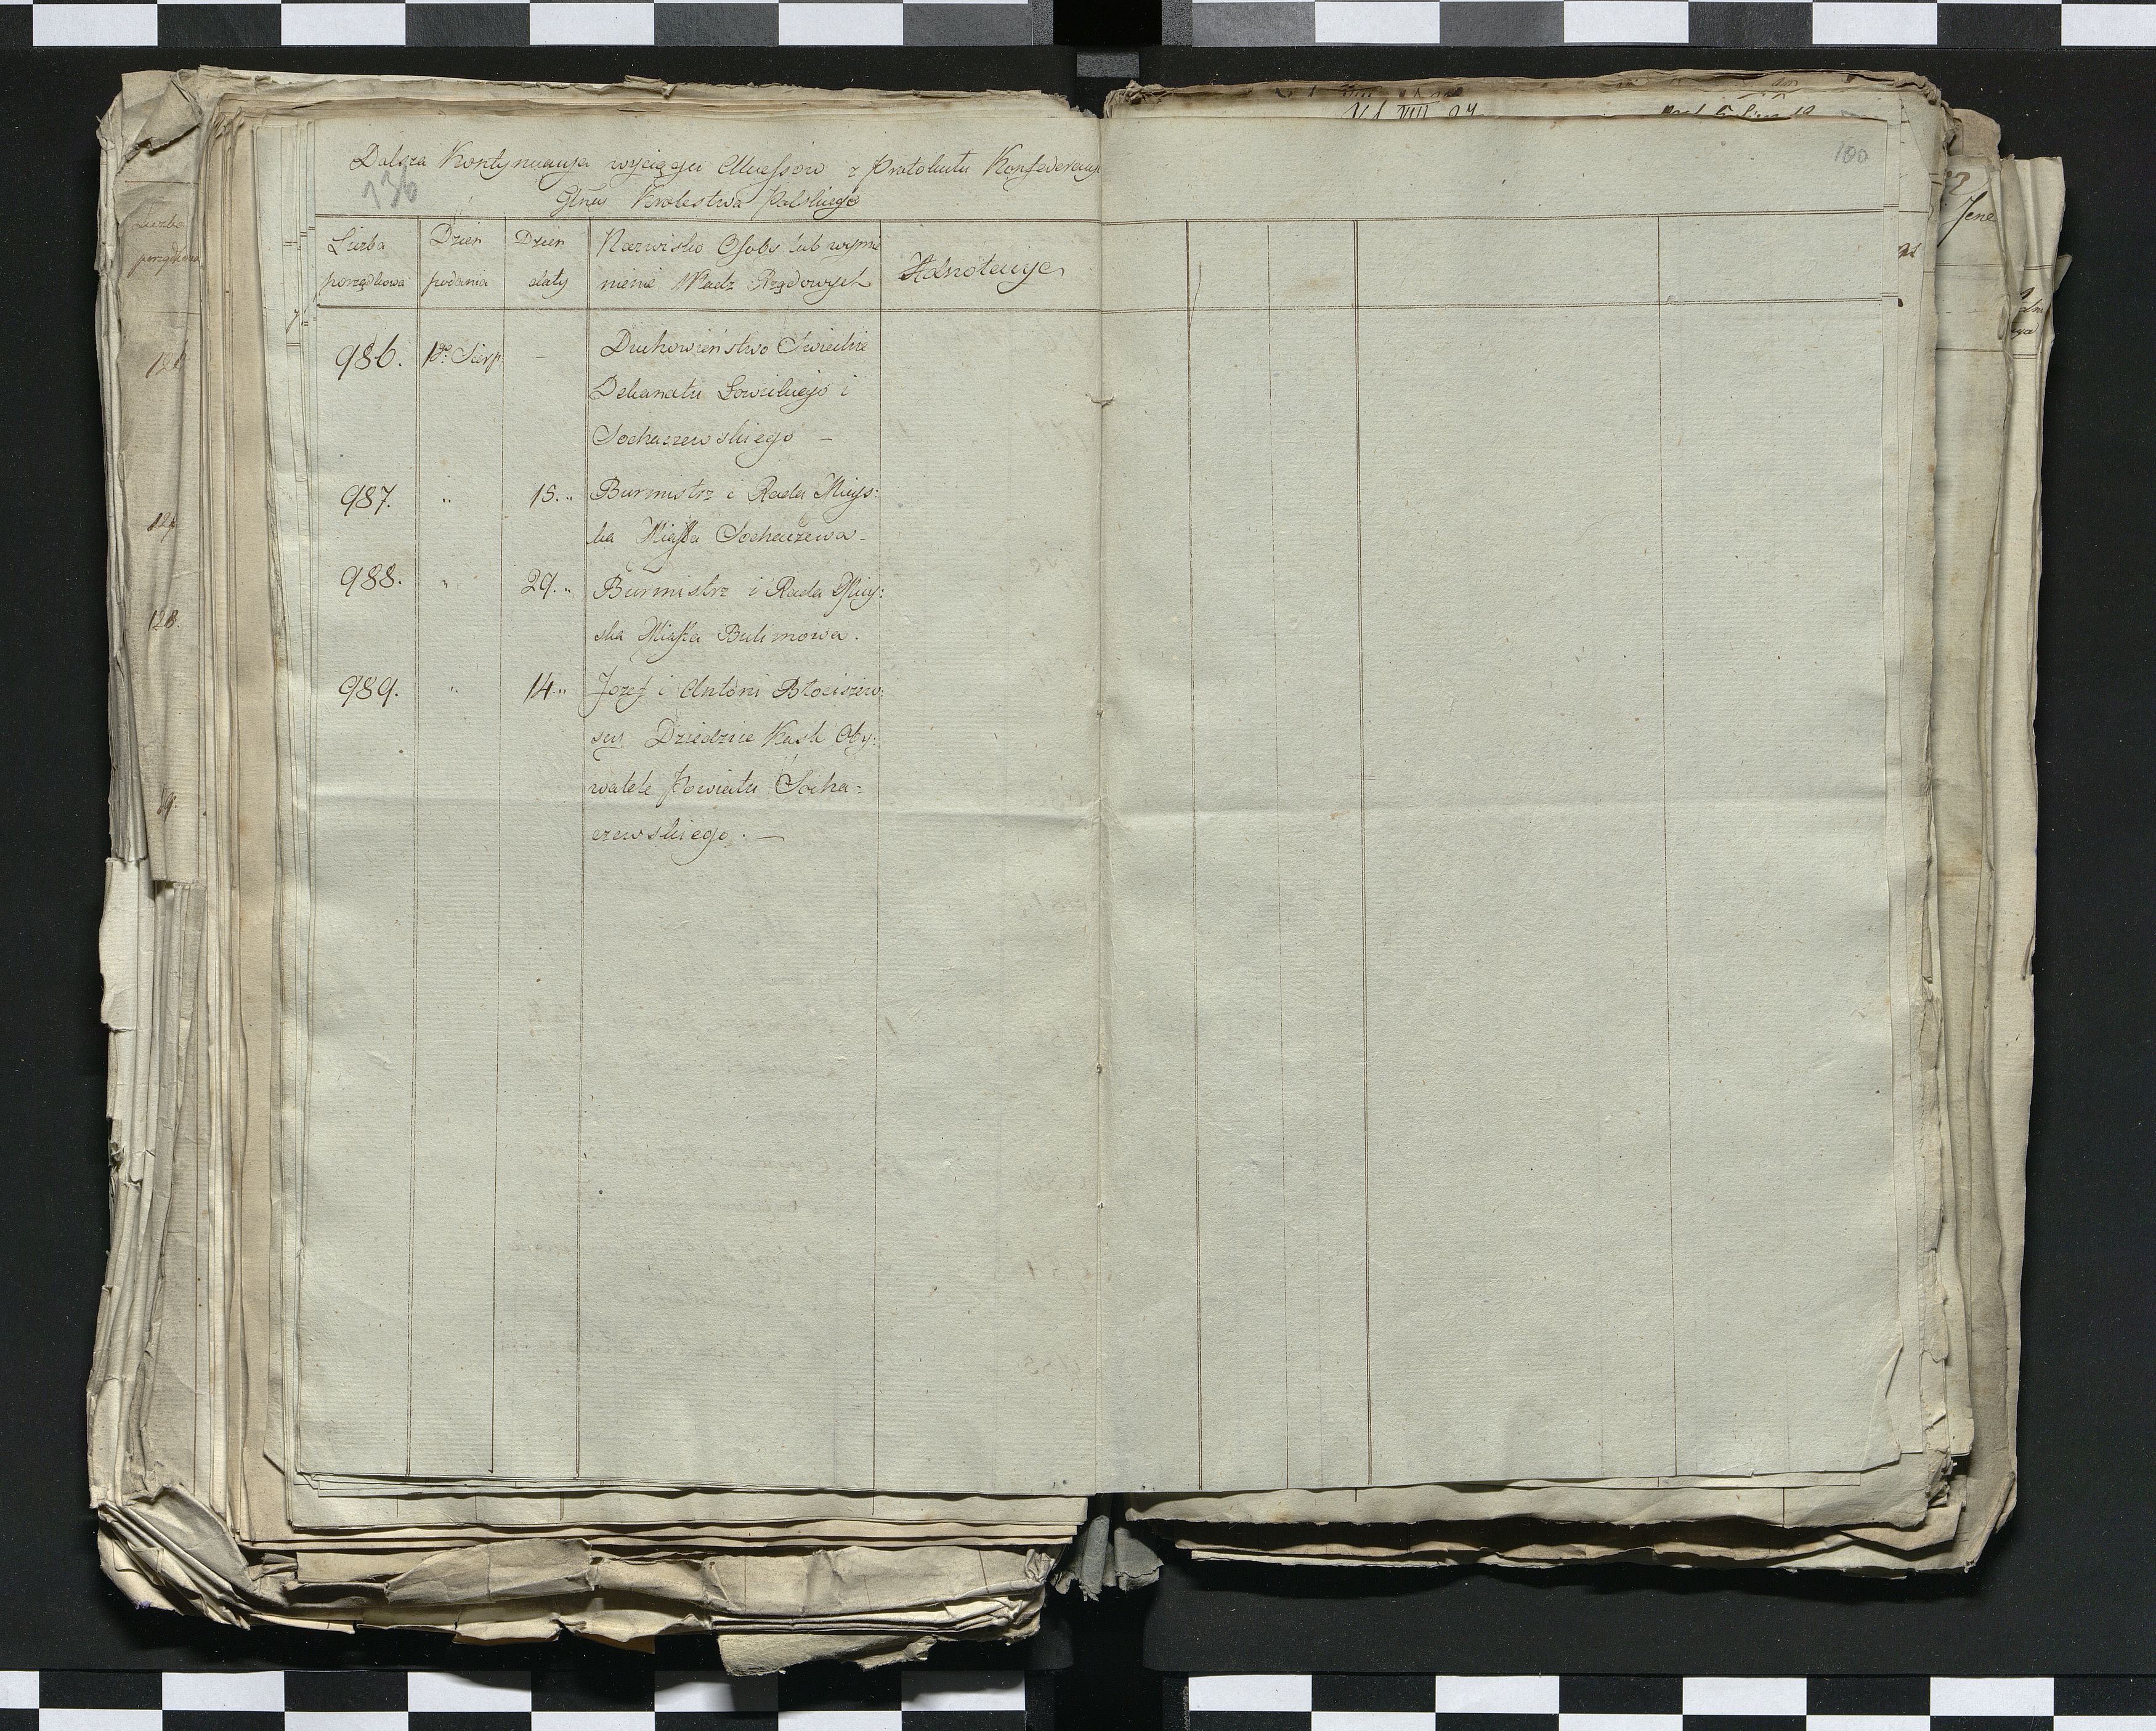 Dalsza Kontynuacya wyciągu Akcessow z Protokułu Konfederacyi
136
Glney Krolestwa Polskiego
100
Liczba porządkowa
Dzien podania
Dzien daty
Nazwisko Osoby lub wymie
nienie Władz Rządowych
Adnotacye
986. 13º Sierp. —
Duchowieństwo Swieckie
Dekanatu Łowickiego i
Sochaczewskiego —
987. " 15. "
Burmistrz i Rada Mieys:
ka Miasta Sochaczewa -
988. " 29. "
Burmistrz i Rada Miey:
ska Miasta Bolimowa.
989. " 14. "
Jozef i Antoni Błociszew:
scy Dziedzice Kask Oby:
watele Powiatu Socha-
czewskiego. —
Liczba
porządkowa
128.